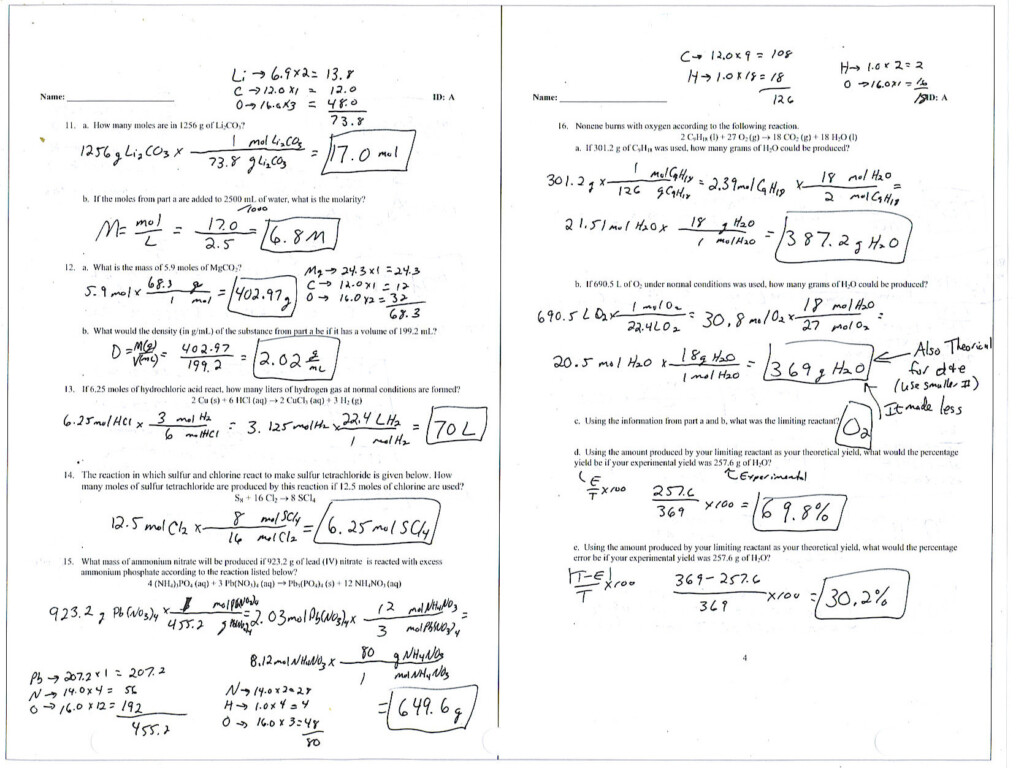 Li → 6.9x2 = 13.8
C → 12.0 x1 = 12.0
O → 16.0x3 = 48.0
73.8
Name:
ID: A
11. a. How many moles are in 1256 g of Li₂CO₃?
1256 g Li₂CO₃ x 1 mol Li₂CO₃ / 73.8 g Li₂CO₃ = 17.0 mol
b. If the moles from part a are added to 2500 mL of water, what is the molarity?
/1000
M = mol / L = 17.0 / 2.5 = 6.8 M
12. a. What is the mass of 5.9 moles of MgCO₃?
Mg → 24.3 x1 = 24.3
C → 12.0x1 = 12
O → 16.0x2 = 32
68.3
5.9 mol x 68.3 g / 1 mol = 402.97 g
b. What would the density (in g/mL) of the substance from part a be if it has a volume of 199.2 mL?
D = M(g) / V(mL) = 402.97 / 199.2 = 2.02 g/mL
13. If 6.25 moles of hydrochloric acid react, how many liters of hydrogen gas at normal conditions are formed?
2 Cu (s) + 6 HCl (aq) → 2 CuCl₃ (aq) + 3 H₂ (g)
6.25 mol HCl x 3 mol H₂ / 6 mol HCl = 3.125 mol H₂ x 22.4 L H₂ / 1 mol H₂ = 70 L
14. The reaction in which sulfur and chlorine react to make sulfur tetrachloride is given below. How
many moles of sulfur tetrachloride are produced by this reaction if 12.5 moles of chlorine are used?
S₈ + 16 Cl₂ → 8 SCl₄
12.5 mol Cl₂ x 8 mol SCl₄ / 16 mol Cl₂ = 6.25 mol SCl₄
15. What mass of ammonium nitrate will be produced if 923.2 g of lead (IV) nitrate is reacted with excess
ammonium phosphate according to the reaction listed below?
4 (NH₄)₃PO₄ (aq) + 3 Pb(NO₃)₄ (aq) → Pb₃(PO₄)₄ (s) + 12 NH₄NO₃ (aq)
923.2 g Pb(NO₃)₄ x 1 mol Pb(NO₃)₄ / 455.2 g Pb(NO₃)₄ = 2.03 mol Pb(NO₃)₄ x 12 mol NH₄NO₃ / 3 mol Pb(NO₃)₄ =
8.12 mol NH₄NO₃ x 80 g NH₄NO₃ / 1 mol NH₄NO₃
= 649.6 g
Pb → 207.2 x 1 = 207.2
N → 14.0 x 4 = 56
O → 16.0 x 12 = 192
455.2
N → 14.0 x 2 = 28
H → 1.0 x 4 = 4
O → 16.0 x 3 = 48
80
C → 12.0 x 9 = 108
H → 1.0 x 18 = 18
126
H → 1.0 x 2 = 2
O → 16.0x1 = 16
18
Name:
ID: A
16. Nonene burns with oxygen according to the following reaction.
2 C₉H₁₈ (l) + 27 O₂ (g) → 18 CO₂ (g) + 18 H₂O (l)
a. If 301.2 g of C₉H₁₈ was used, how many grams of H₂O could be produced?
301.2 g x 1 mol C₉H₁₈ / 126 g C₉H₁₈ = 2.39 mol C₉H₁₈ x 18 mol H₂O / 2 mol C₉H₁₈ =
21.51 mol H₂O x 18 g H₂O / 1 mol H₂O = 387.2 g H₂O
b. If 690.5 L of O₂ under normal conditions was used, how many grams of H₂O could be produced?
690.5 L O₂ x 1 mol O₂ / 22.4 L O₂ = 30.8 mol O₂ x 18 mol H₂O / 27 mol O₂ =
20.5 mol H₂O x 18 g H₂O / 1 mol H₂O = 369 g H₂O
Also Theorical
for d+e
(use smaller #)
It made less
c. Using the information from part a and b, what was the limiting reactant?
O₂
d. Using the amount produced by your limiting reactant as your theoretical yield, what would the percentage
yield be if your experimental yield was 257.6 g of H₂O?
Experimental
E / T x100
257.6 / 369 x 100 = 69.8%
e. Using the amount produced by your limiting reactant as your theoretical yield, what would the percentage
error be if your experimental yield was 257.6 g of H₂O?
|T-E| / T x100
369 - 257.6 / 369 x100 = 30.2%
4